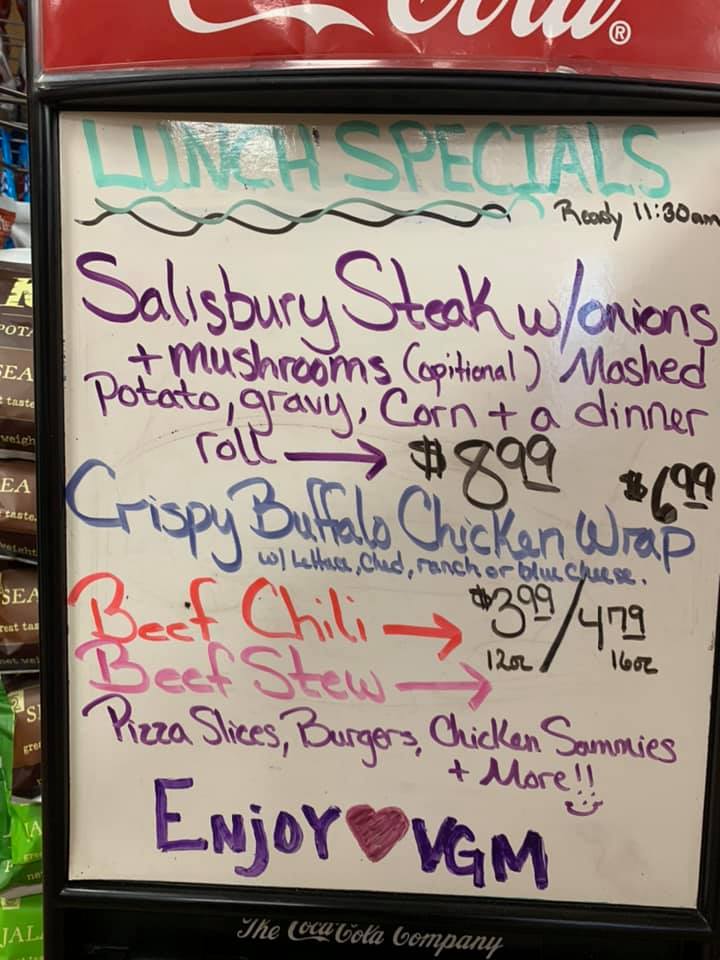 Cola®
LUNCH SPECIALS
Ready 11:30am
Salisbury Steak w/onions
+ mushrooms (opitional) Mashed
Potato, gravy, Corn + a dinner
roll → $8.99
$6.99
Crispy Buffalo Chicken Wrap
w/ Lettuce, Ched, ranch or blue cheese.
Beef Chili → $3.99/4.79
12oz 16oz
Beef Stew →
Pizza Slices, Burgers, Chicken Sammies
+ More!!
ENJOY ♥ VGM
The Coca-Cola Company
POTA
SEA
t taste
weigh
EA
taste.
SEA
reat tas
net wei
JAL